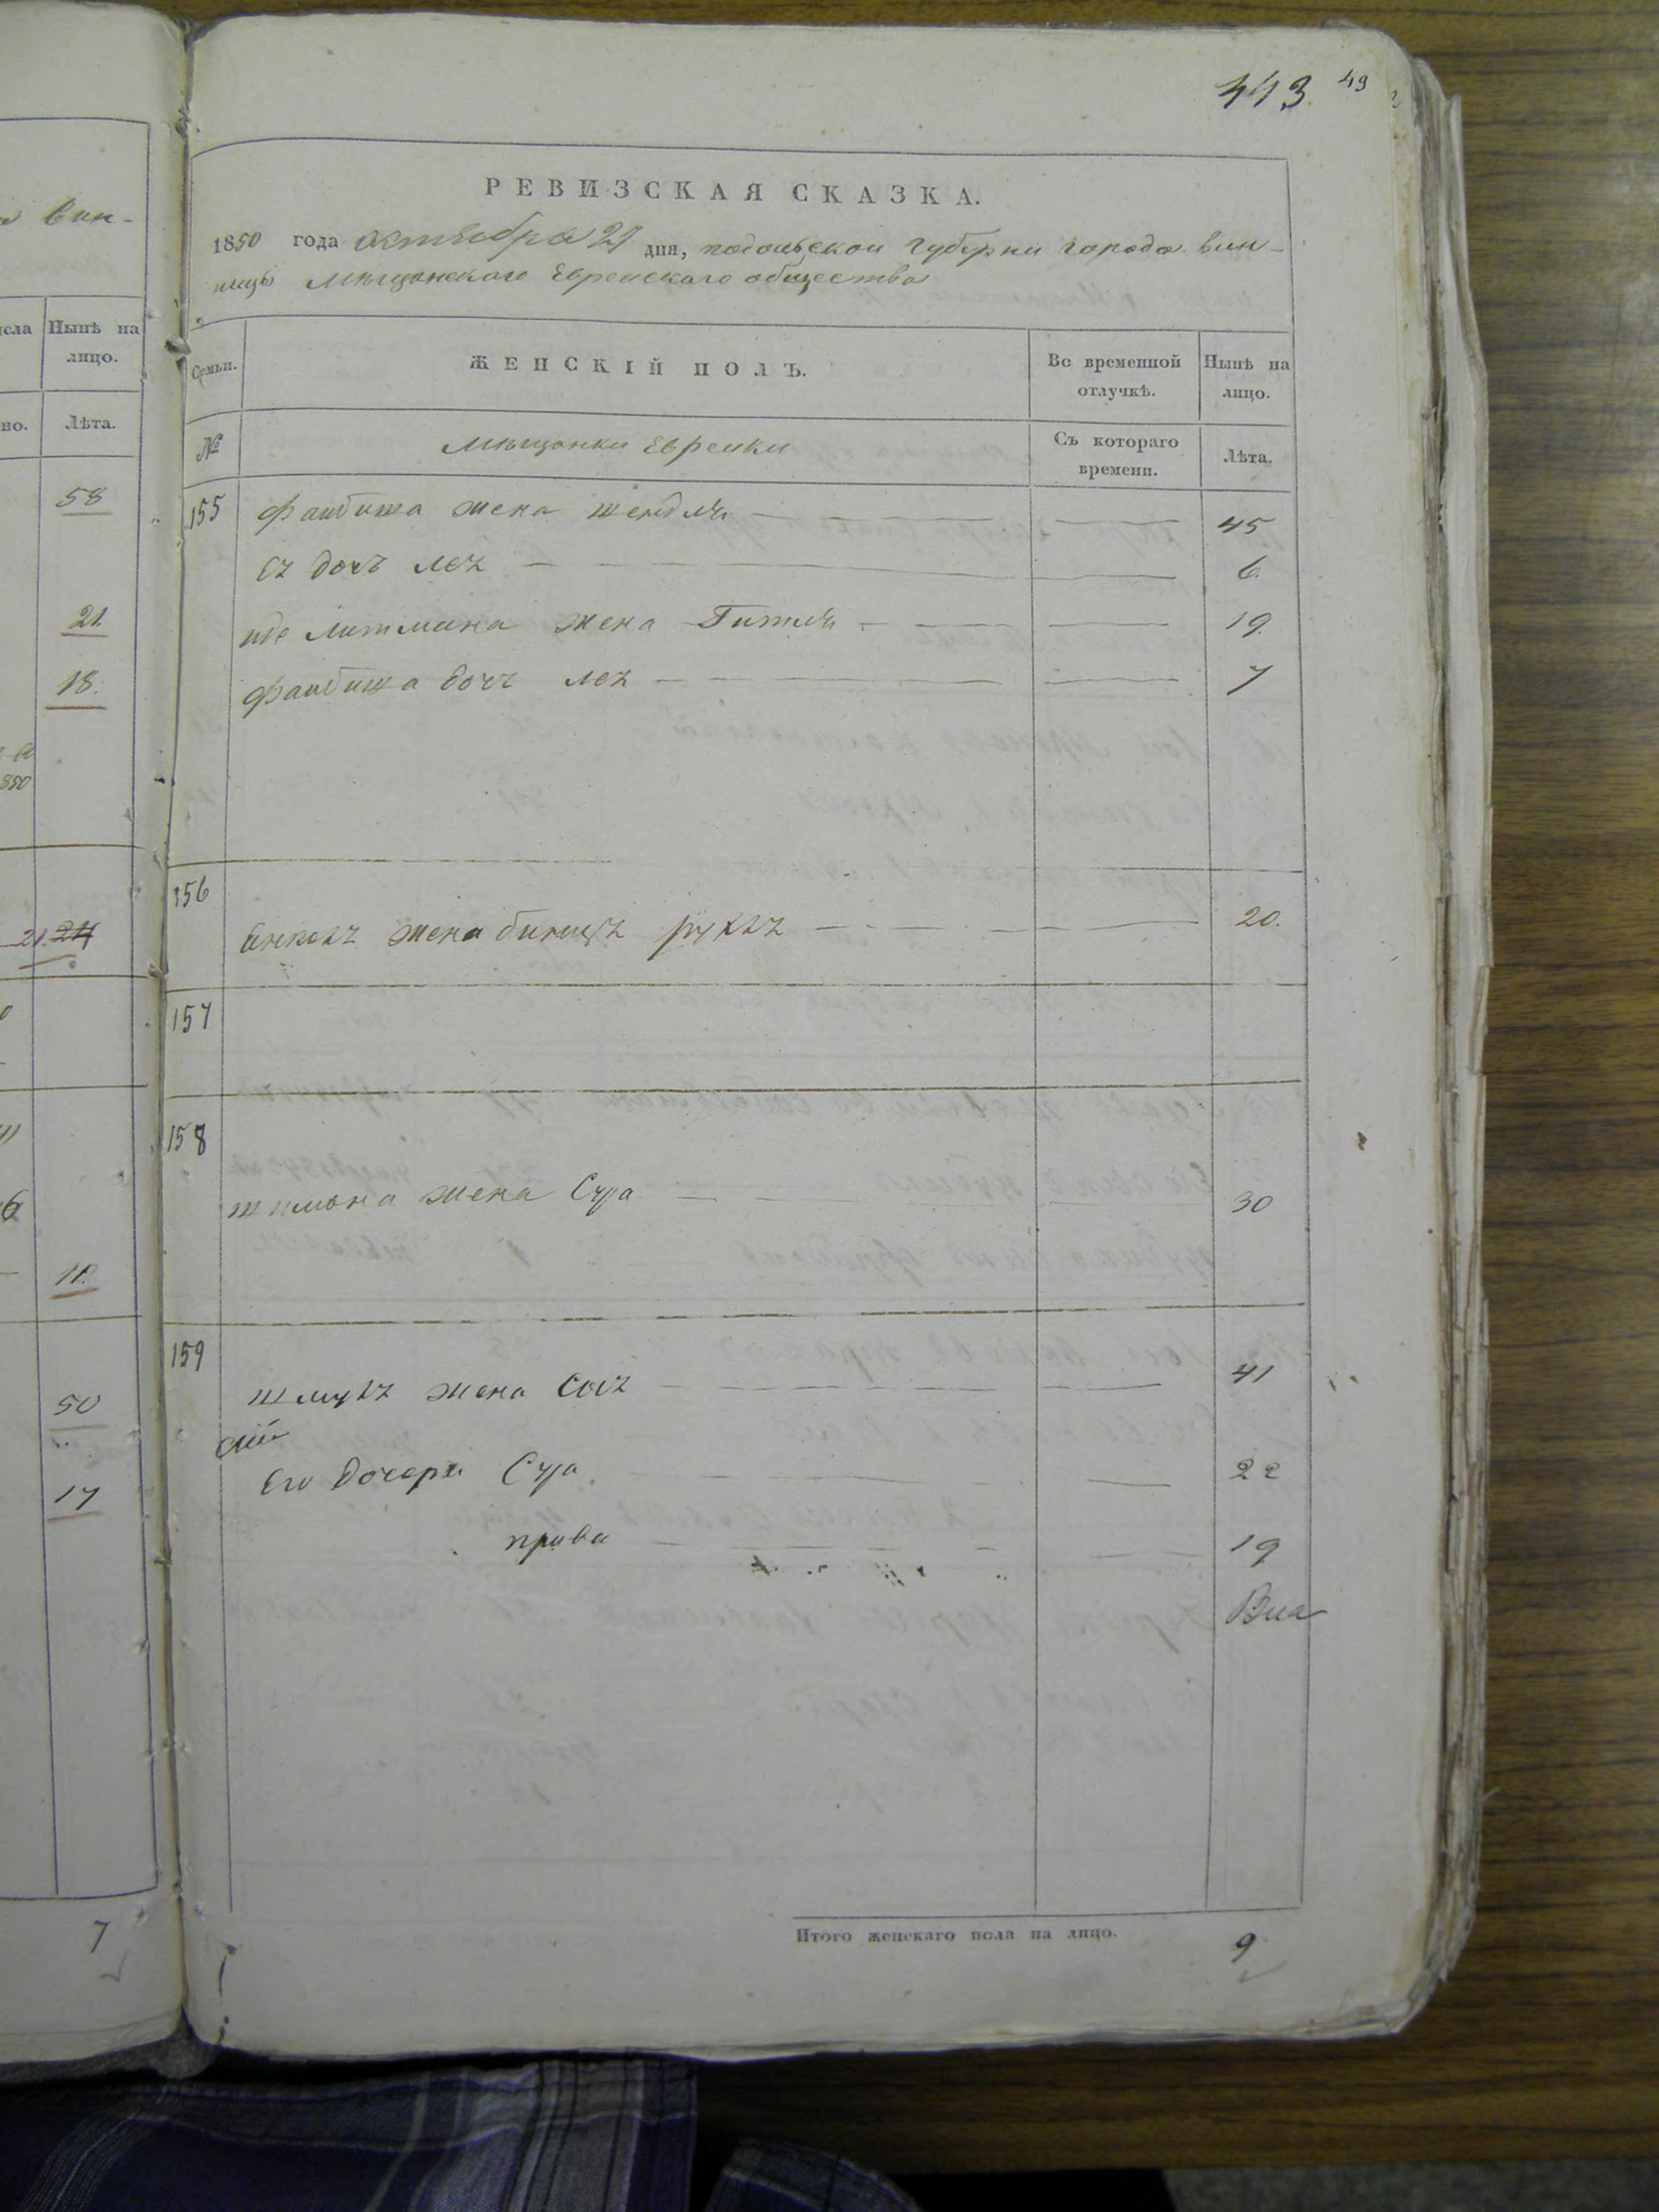 443. 49
РЕВИЗСКАЯ СКАЗКА.
1850 года октября 27 дня, подольской губерни города вин-
ницы мещанского Евреиского общества
Семьи. ЖЕНСКІЙ ПОЛЪ. Во временной отлучкѣ. Нынѣ на лицо.
№ мещанки Евреики Съ котораго времени. Лѣта.
155 фаибиша жена 45
дочъ лея 6.
литмана жена Гитля 19.
фаибиша дочъ лея 7
156
жена 20.
157
158
шимона жена Сура 30
159
шмуля жена Сося 41
Его дочери Сура 22
прива 19
Итого женскаго пола на лицо. 9
вин-
исла Нынѣ на лицо.
но. Лѣта.
58
21.
18.
850
21. 24
6
11.
50
17
7